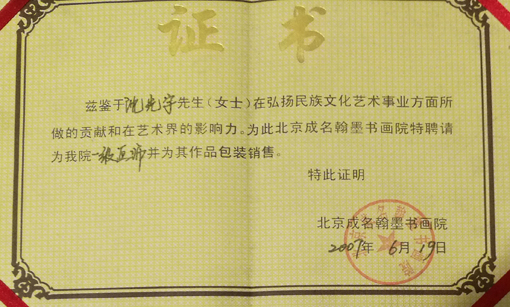 证书
兹鉴于沈光宇先生（女士）在弘扬民族文化艺术事业方面所
做的贡献和在艺术界的影响力。为此北京成名翰墨书画院特聘请
为我院一级画师并为其作品包装销售。
特此证明
北京成名翰墨书画院
2007年6月19日